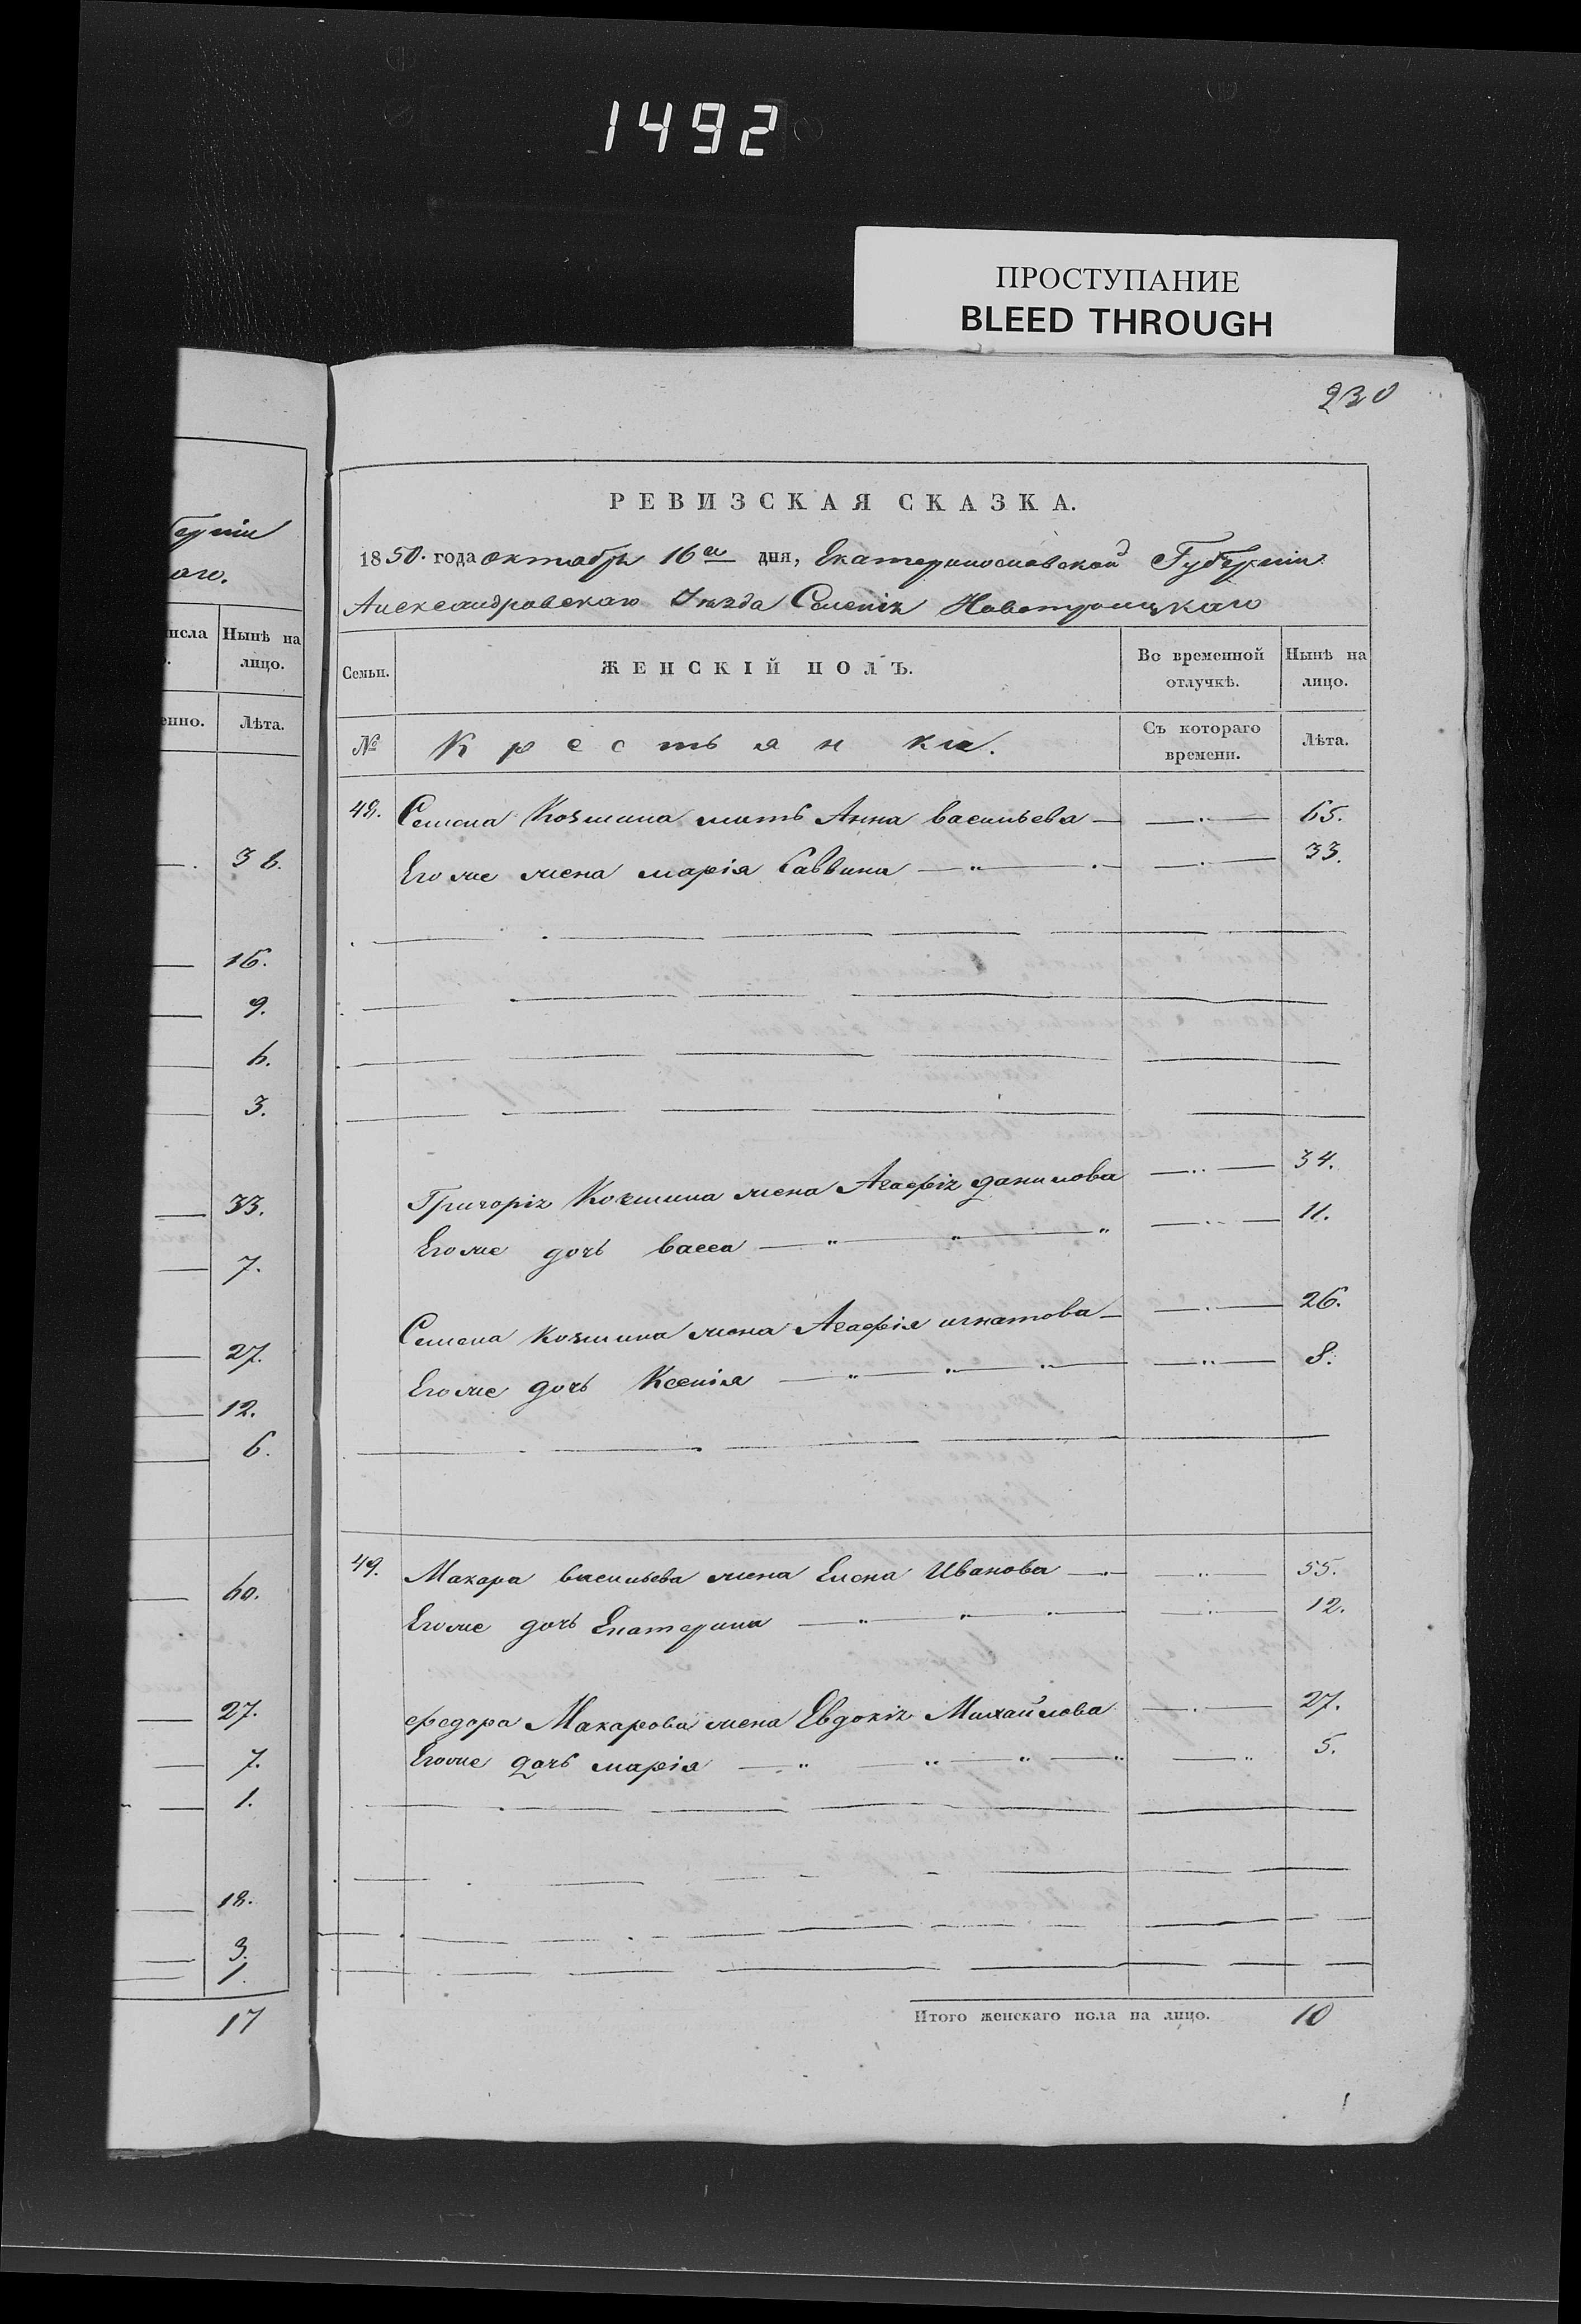 1492
ПРОСТУПАНИЕ
BLEED THROUGH
230
РЕВИЗСКАЯ СКАЗКА.
1850. года октября 16го дня, Екатеринославской Губерніи
Александровскаго Уѣзда Селенія Новотроицкаго
Семьи. ЖЕНСКІЙ ПОЛЪ. Во временной отлучкѣ. Нынѣ на лицо.
№ Крестьянки. Съ котораго времени. Лѣта.
48. Семена Козмина мать Анна васильева 65.
Его же жена марія Саввина 33.
Григорія Козмина жена Агафія данилова 34.
Его же дочь васса 11.
Семена козмина жена Агафія игнатова 26.
Его же дочь Ксенія 8.
49. Макара васильева жена Елена Иванова 55.
Его же дочь Екатерина 12.
федора Макарова жена Евдокія Михайлова 27.
Его же дочь марія 5.
Итого женскаго пола на лицо. 10
Нынѣ на
лицо.
Лѣта.
16.
9.
3.
33.
7.
27.
12.
6.
27.
7.
1.
18.
3.
1.
17